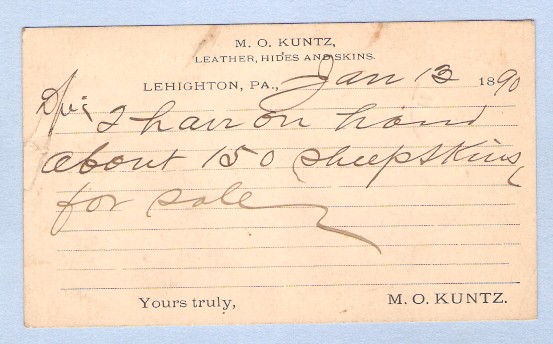 M. O. KUNTZ,
LEATHER, HIDES AND SKINS.
LEHIGHTON, PA., Jan 13 1890
I have on hand
about 150 sheepskins
for sale
Yours truly, M. O. KUNTZ.